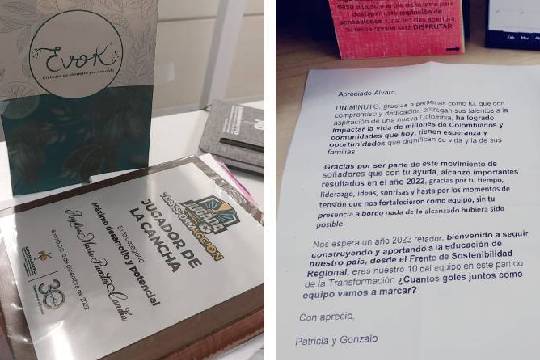 EvoK
JUGADOR DE
LA CANCHA
Máximo desarrollo y potencial
30
DISFRUTAR
Apreciado Álvaro,
UN MINUTO, gracias a
compromiso y dedicación, entregan sus talentos a la
ha logrado
impactar la vida de millones de colombianos y
comunidades que hoy, tienen esperanza y
oportunidades que dignifican su vida y la de sus
familias.
Gracias por ser parte de este movimiento de
soñadores que con tu ayuda, alcanzó importantes
resultados en el año 2022, gracias por tu tiempo,
liderazgo, ideas, sonrisas y hasta por los momentos de
tensión que nos fortalecieron como equipo, sin tu
presencia a bordo nada de lo alcanzado hubiera sido
posible.
Nos espera un año 2023 retador, bienvenido a seguir
construyendo y aportando a la educación de
nuestro país, desde el Frente de Sostenibilidad
Regional, eres nuestro 10 del equipo en este partido
de la Transformación. ¿Cuántos goles juntos como
equipo vamos a marcar?
Con aprecio,
Patricia y Gonzalo